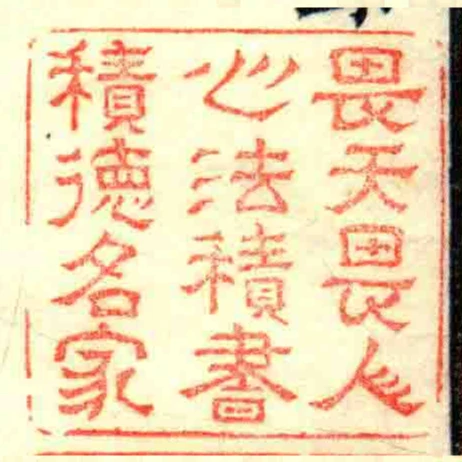 畏天畏人
心法積書
積德名家